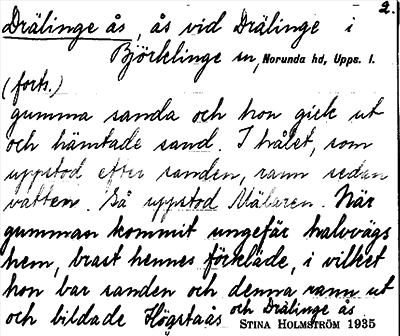 2.
Drälinge ås, ås vid Drälinge i
Björklinge sn, Norunda hd, Upps. l.
(forts.)
gumma sanda och hon gick ut
och hämtade sand. I hålet, som
uppstod efter sanden, rann sedan
vatten. Så uppstod Mälaren. När
gumman kommit ungefär halvvägs
hem, brast hennes förkläde, i vilket
hon bar sanden och denna rann ut
och bildade Högstaås och Drälinge ås
STINA HOLMSTRÖM 1935